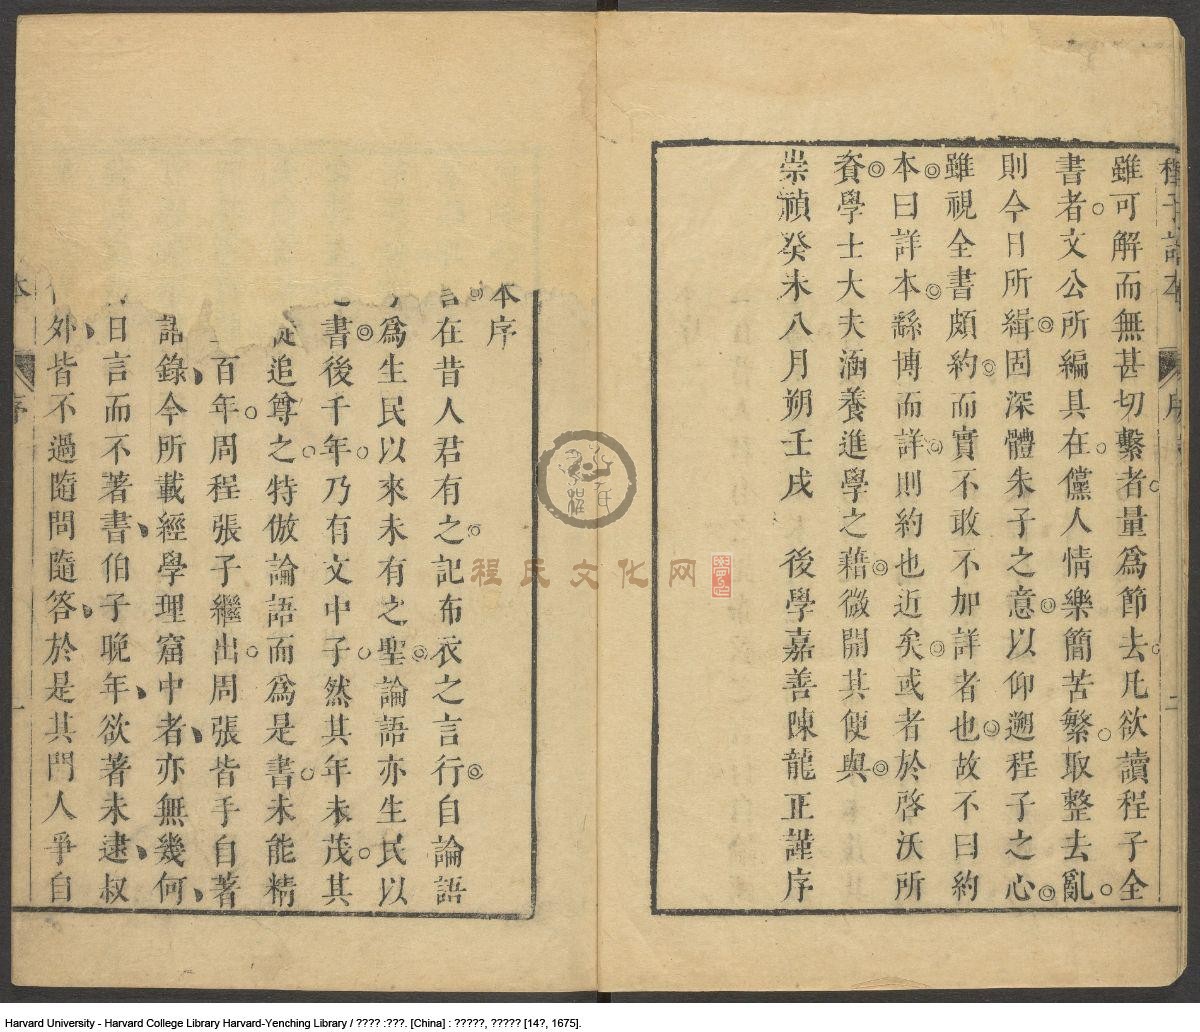 雖可解而無甚切繫者量爲節去凡欲讀程子全
書者文公所編具在儻人情樂簡苦繁取整去亂
則今日所緝固深體朱子之意以仰遡程子之心
雖視全書頗約而實不敢不加詳者也故不曰約
本曰詳本繇博而詳則約也近矣或者於啓沃所
資學士大夫涵養進學之藉微開其便與
崇禎癸未八月朔壬戌 後學嘉善陳龍正謹序
二
本序
言在昔人君有之記布衣之言行自論語
爲生民以來未有之聖論語亦生民以
書後千年乃有文中子然其年未茂其
從追尊之特倣論語而爲是書未能精
百年周程張子繼出周張皆手自著
語錄今所載經學理窟中者亦無幾何
日言而不著書伯子晩年欲著未逮叔
外皆不過隨問隨答於是其門人爭自
本 序 一
程氏文化网
Harvard University - Harvard College Library Harvard-Yenching Library / ???? :???. [China] : ?????, ????? [14?, 1675].